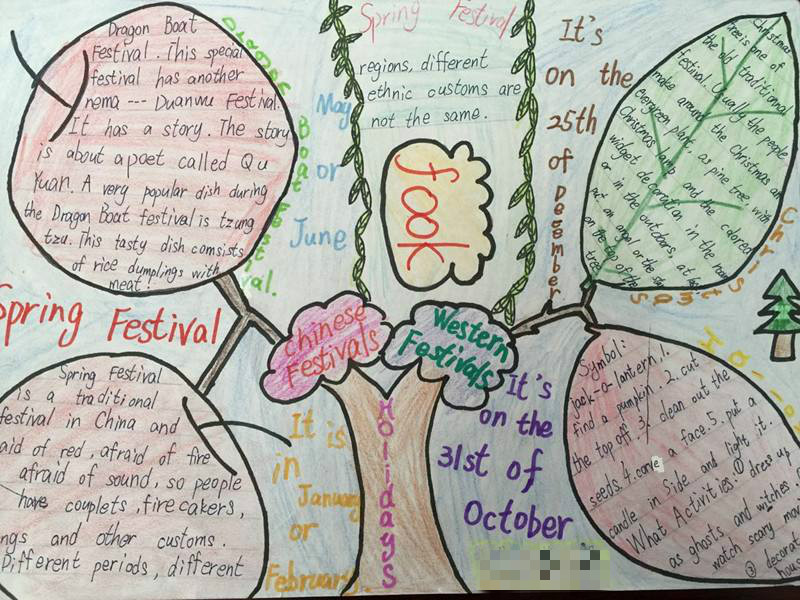 Dragon Boat
Festival. This special
festival has another
nema --- Duanwu Festival.
It has a story. The story
is about a poet called Qu
Yuan. A very popular dish during
the Dragon Boat festival is tzung
tzu. This tasty dish comsists
of rice dumplings with
meat!
Dragon Boat Festival.
May
or
June
Spring Festival
regions, different
ethnic customs are
not the same.
fook
It's
on the
25th
of
December
Christmas
tree is one of
the old traditional
festival. Usually the people
make around the Christmas an
evergreen plant, as pine tree with
Christmas lamp and the colored
widget decoration in the house
or in the outdoors, at last
put an angel or the star
on the top of the
tree.
Christmas
Spring Festival
Spring Festival
is a traditional
festival in China and
aid of red, afraid of fire
afraid of sound, so people
have couplets, fire cakers,
ngs and other customs.
Different periods, different
It is
in
January
or
February.
Chinese
Festivals
Western
Festivals
Holidays
It's
on the
31st of
October
Symbol:
jack-o-lantern. 1.
find a pumpkin. 2. cut
the top off. 3. clean out the
seeds. 4. carve a face. 5. put a
candle in side and light it.
What Activities: ① dress up
as ghosts and witches.
watch scary mov
③ decorat
hous